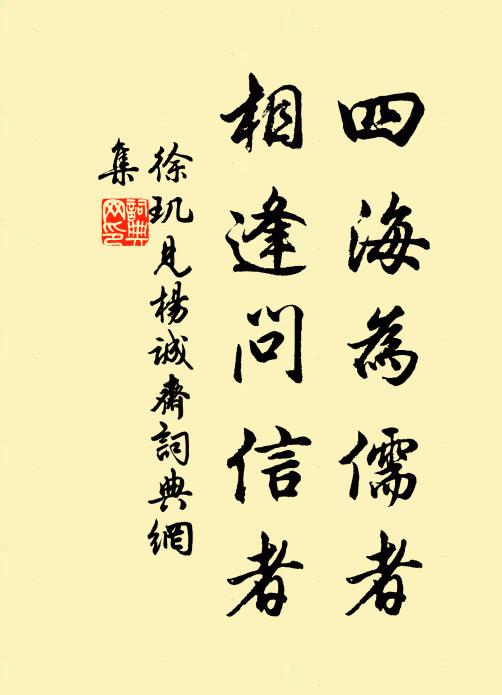 四海為儒者
相逢問信者
徐玑見楊誠齋詞典網
集
詞典網印